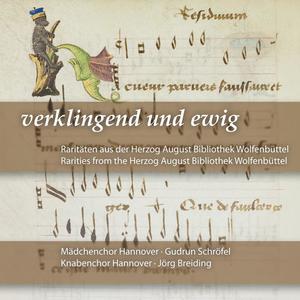 Residuum
cueur parvers faulsaret
verklingend und ewig
Raritäten aus der Herzog August Bibliothek Wolfenbüttel
Rarities from the Herzog August Bibliothek Wolfenbüttel
ger
Que de faulcete
Mädchenchor Hannover · Gudrun Schröfel
Knabenchor Hannover · Jörg Breiding